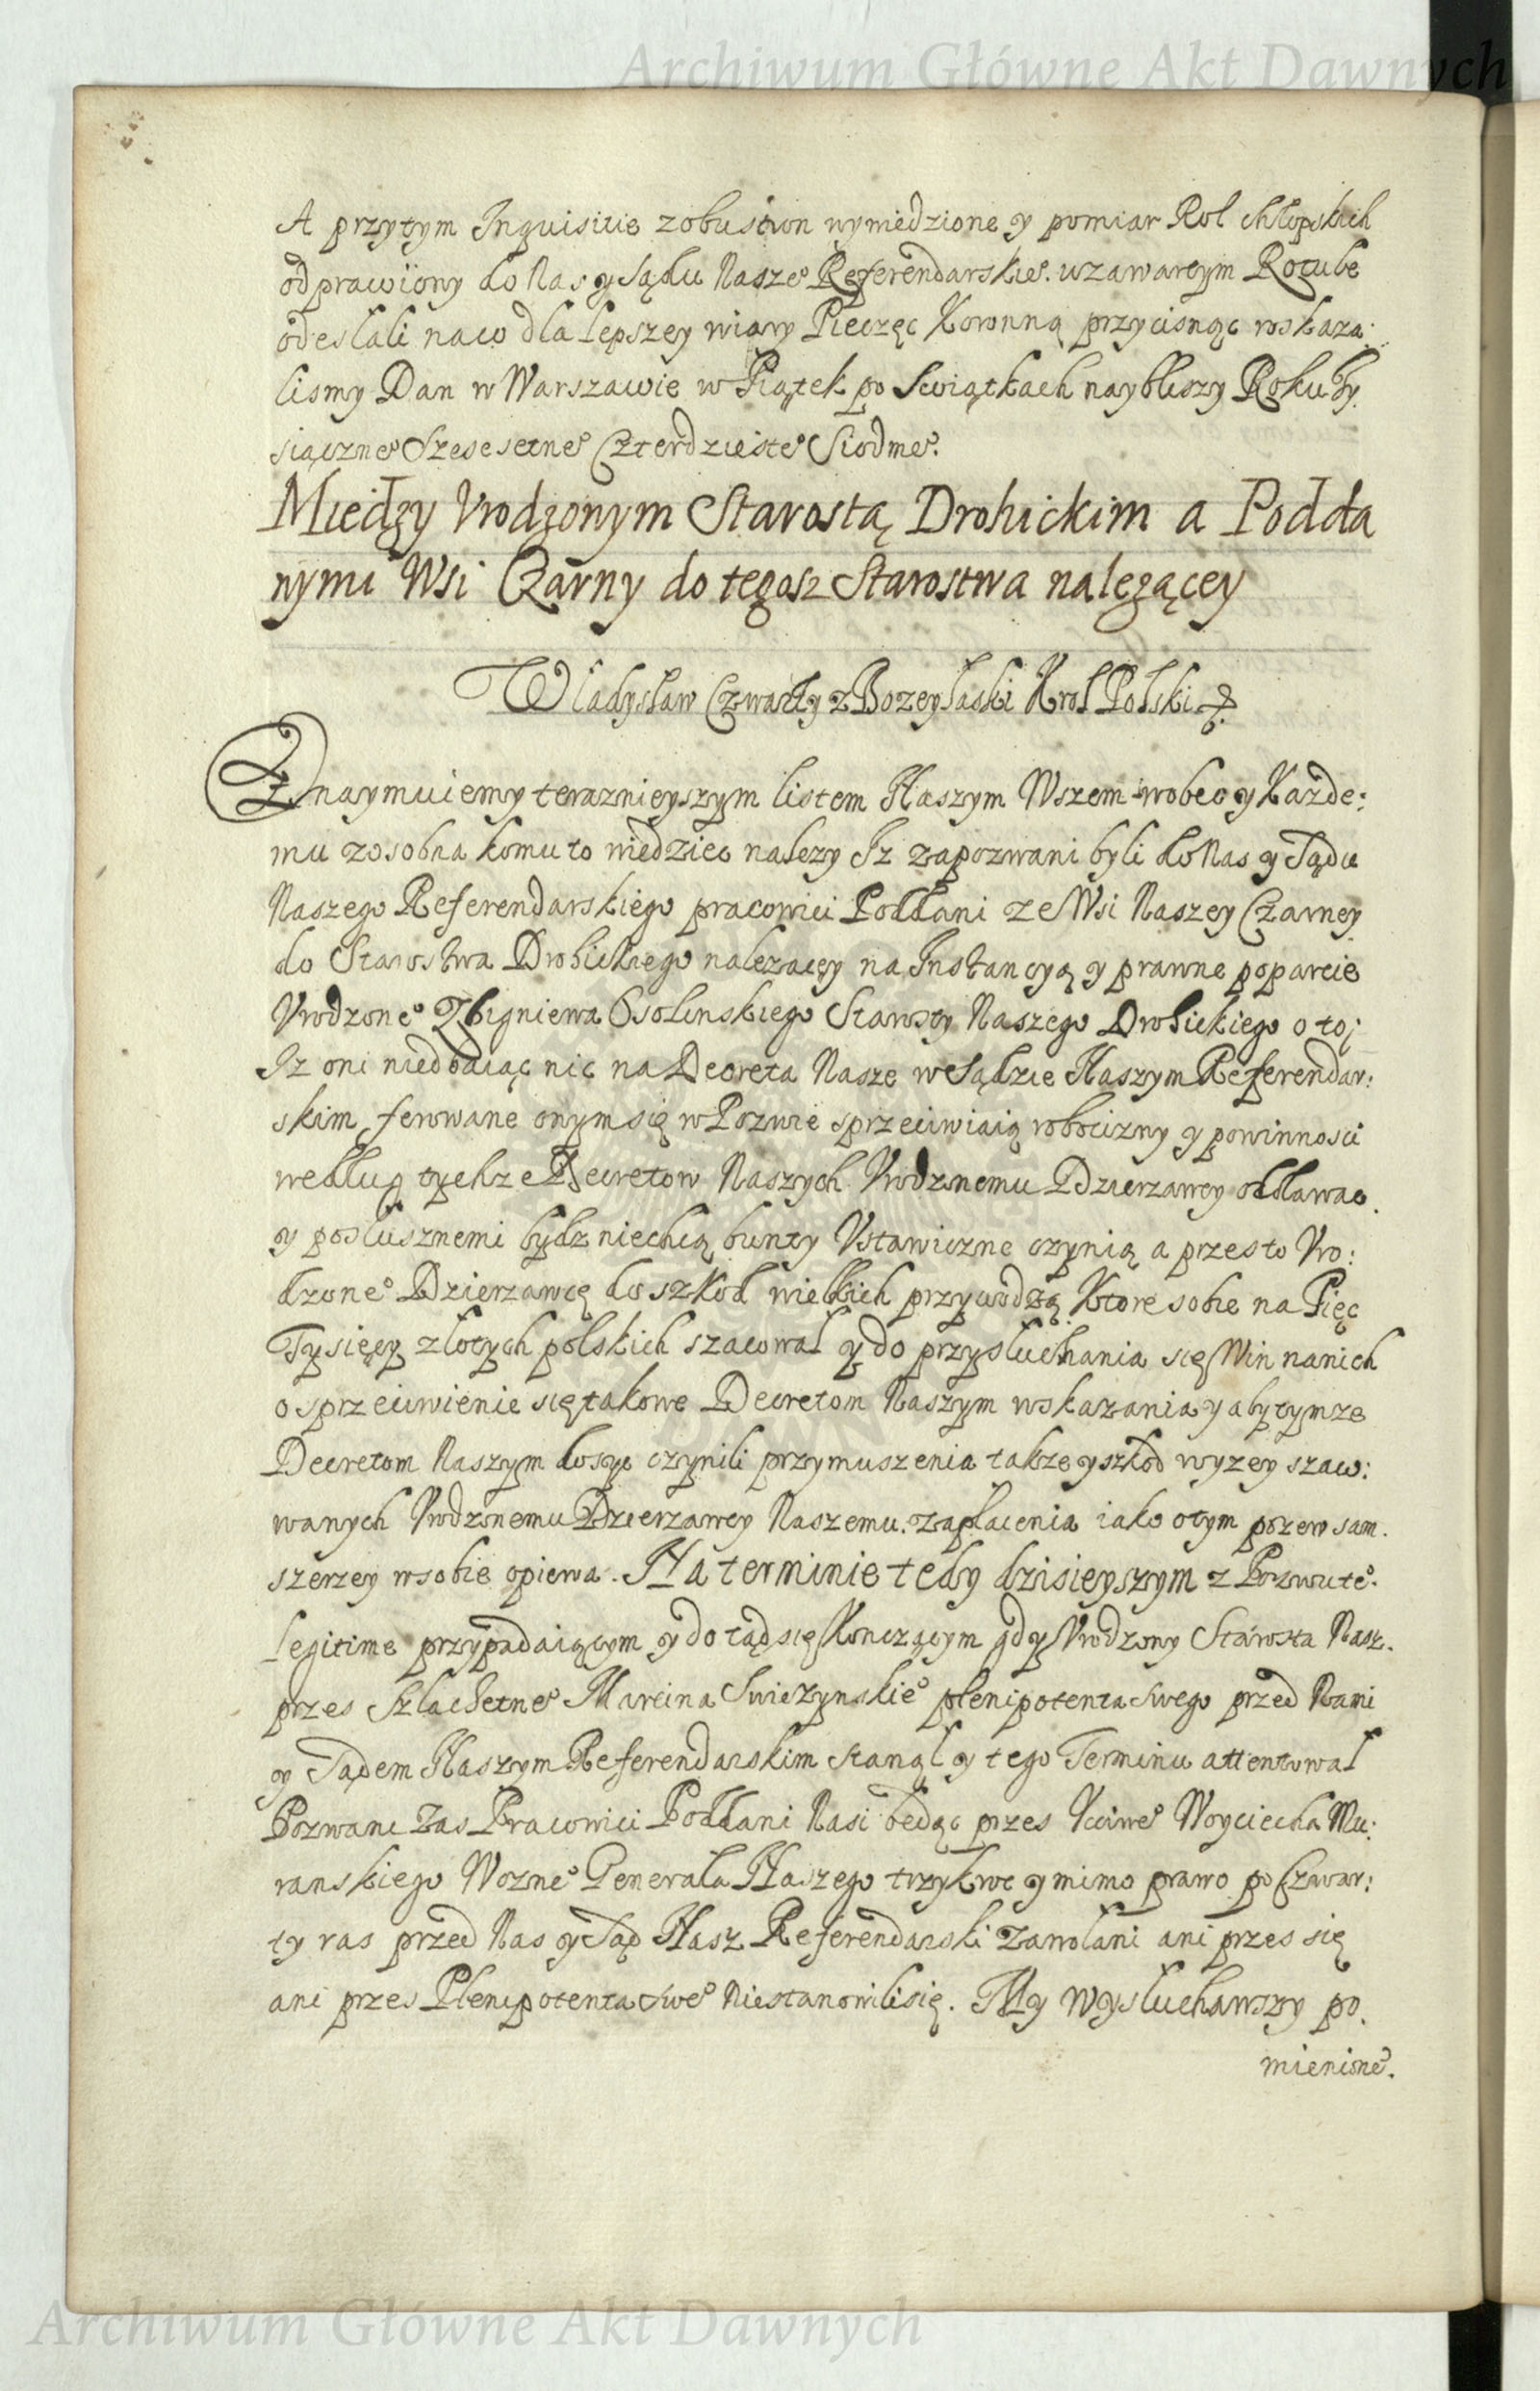 Archiwum Główne Akt Dawnych
A przytym Inquisitie zobustron wywiedzione y pomiar Rol Chłopskich
odprawiony do Nas y Sądu Nasze° Referendarskie°. w zawartym Rotule
odeslali na co dla lepszey wiary Pieczęc Koronną przycisnąc roskaza:
lismy Dan w Warszawie w Piątek po Swiątkach naybliszy Roku Ty
siączne° Szescsetne° Czterdzieste° Siodme°.
Między Vrodzonym Starostą Drohickim a Podda
nymi Wsi Czarny do tegosz Starostwa nalezącey
Władysław Czwarty z Bozey łaski Krol Polski &.
Oznaymuiemy teraznieyszym listem Naszym Wszem wobec y Kazde:
mu zosobna komu to wiedziec nalezy Iz zapozwani byli do Nas y Sądu
Naszego Referendarskiego pracowici Poddani ze Wsi Naszey Czarney
do Starostwa Drohickiego nalezacey na Instancyą y prawne poparcie
Vrodzone° Zbigniewa Osolinskiego Starosty Naszego Drohickiego o to;
Iz oni niedbaiąc nic na Decreta Nasze w Sądzie Naszym Referendar:
skim ferowane onym się w Pozwie sprzeciwiaią robocizny y powinnosci
według tychze Decretow Naszych Vrodzonemu Dzierzawcy oddawac
y posłusznemi bydz niechcą bunty Vstawiczne czynią a przes to Vro:
dzone° Dzierzawcę do szkod wielkich przywodzą Ktore sobie na Pięc
Tysięcy złotych polskich szacował y do przysłuchania się Win na nich
o sprzeciwienie się takowe Decretom Naszym wskazania y aby tymze
Decretom Naszym dosyc czynili przymuszenia takze y szkod wyzey szaco:
wanych Vrodzonemu Dzierzawcy Naszemu. zapłacenia iako o tym pozew sam.
szerzey w sobie opiewa. Na terminie tedy dzisieyszym z Pozwu te°.
Legitime przypadaiącym y do tąd się Konczącym gdy Vrodzony Starosta Nasz.
przes Szlachetne° Marcina Swiezynskie° plenipotenta swego przed Nami
y Sądem Naszym Referendarskim stanął y tego Terminu attentował
Pozwani zas Pracowici Poddani Nasi będąc przes Vcciwe° Woyciecha Mu:
ranskiego Wozne° Generała Naszego trzykroc y mimo prawo po Czwar:
ty ras przed Nas y Sąd Nasz Referendarski zawołani ani przes się
ani przes Plenipotenta swe° nie stanowili się. My wysłuchawszy po.
mienione°.
Archiwum Główne Akt Dawnych